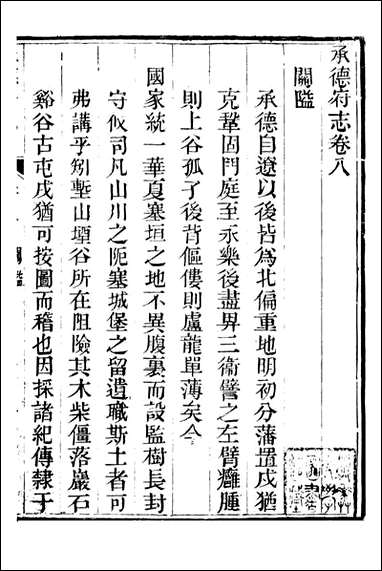 承德府志卷八
關隘
承德自遼以後皆為北偏重地明初分藩置戍猶
克鞏固門庭至永樂後盡畀三衞譬之左臂癰腫
則上谷孤了後背傴僂則盧龍單薄矣今
國家統一華夏塞垣之地不異腹裏而設監樹長封
守攸司凡山川之阨塞城堡之留遺職斯土者可
弗講乎矧塹山堙谷所在阻險其木柴僵落巖石
谿谷古屯戍猶可按圖而稽也因採諸紀傳隸于